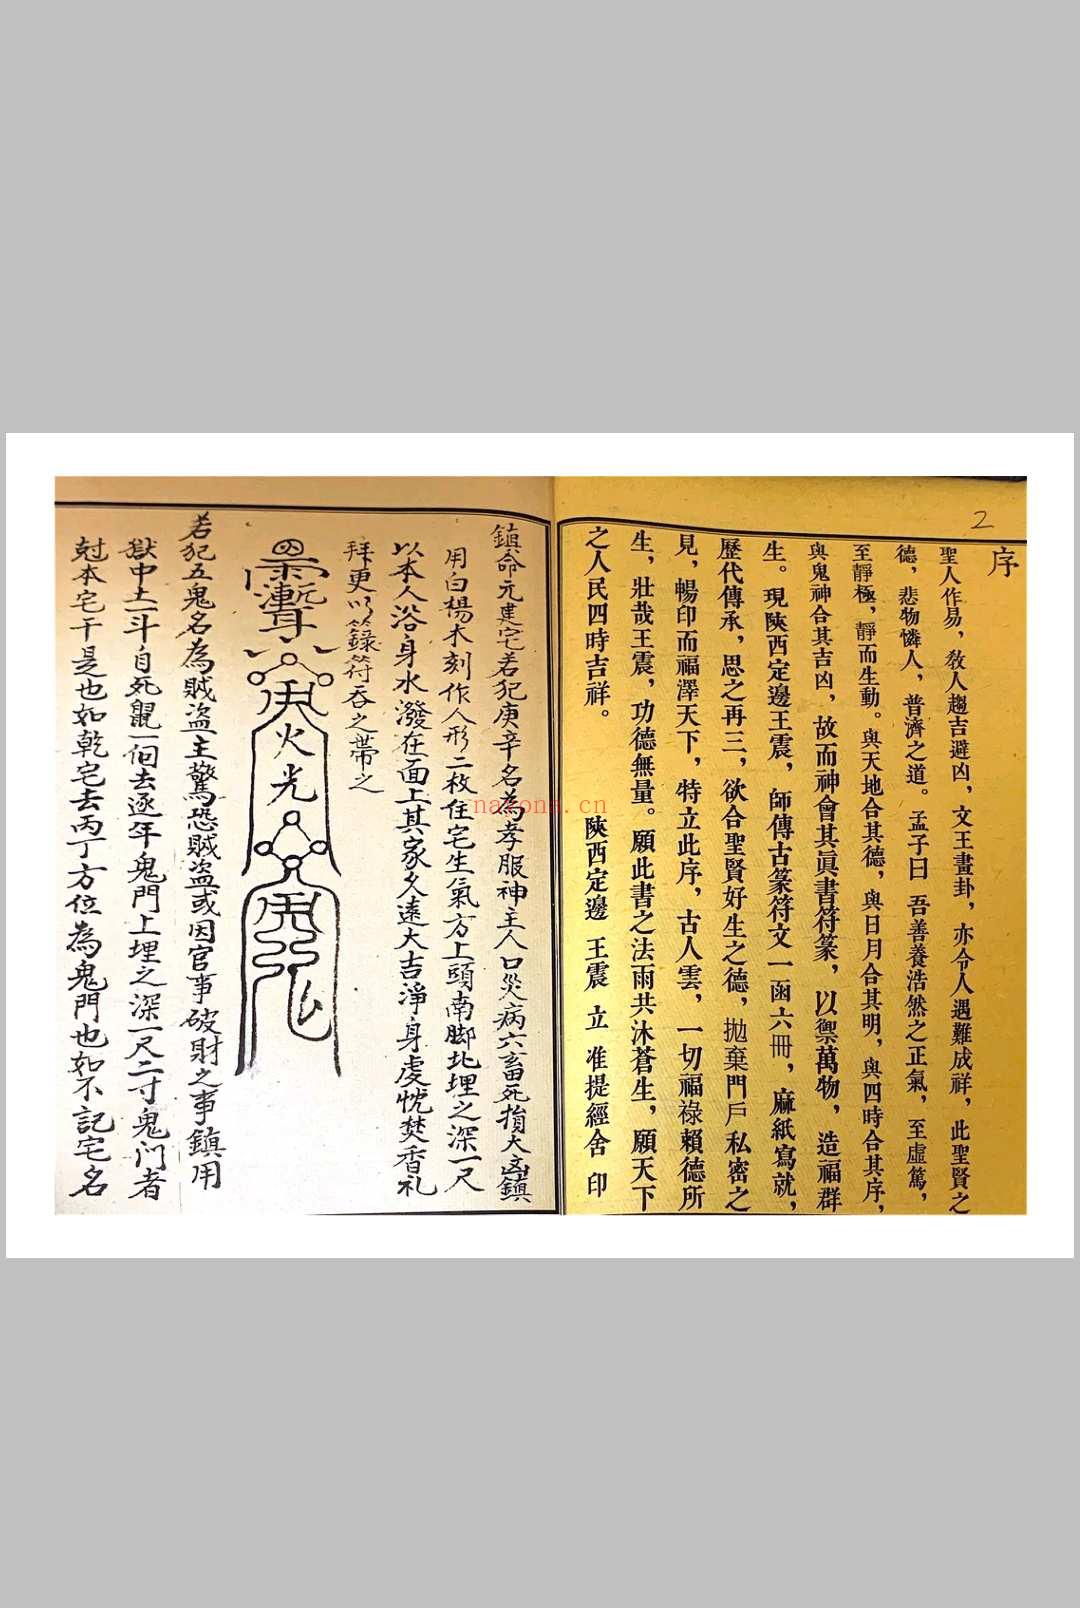 2
序
聖人作易，教人趨吉避凶，文王畫卦，亦令人遇難成祥，此聖賢之
德，悲物憐人，普濟之道。孟子曰 吾善養浩然之正氣，至虛篤，
至靜極，靜而生動。與天地合其德，與日月合其明，與四時合其序，
與鬼神合其吉凶，故而神會其眞書符篆，以禦萬物，造福群
生。現陝西定邊王震，師傳古篆符文一函六冊，麻紙寫就，
歷代傳承，思之再三，欲合聖賢好生之德，拋棄門戶私密之
見，暢印而福澤天下，特立此序，古人雲，一切福祿賴德所
生，壯哉王震，功德無量。願此書之法雨共沐蒼生，願天下
之人民四時吉祥。 陝西定邊 王震 立 准提經舍 印
鎮命元建宅若犯庚辛名為孝服神主人口災病六畜死損大凶鎮
用白楊木刻作人形二枚住宅生氣方上頭南脚北埋之深一尺
以本人浴身水潑在面上其家久遠大吉淨身虔忱焚香礼
拜更以籙符吞之帶之
火光
若犯五鬼名為賊盜主驚恐賊盜或因官事破財之事鎮用
獄中土一斗自死鼠一個去逐年鬼門上埋之深一尺二寸鬼门者
尅本宅干是也如乾宅去丙丁方位為鬼門也如不記宅名
nayona.cn